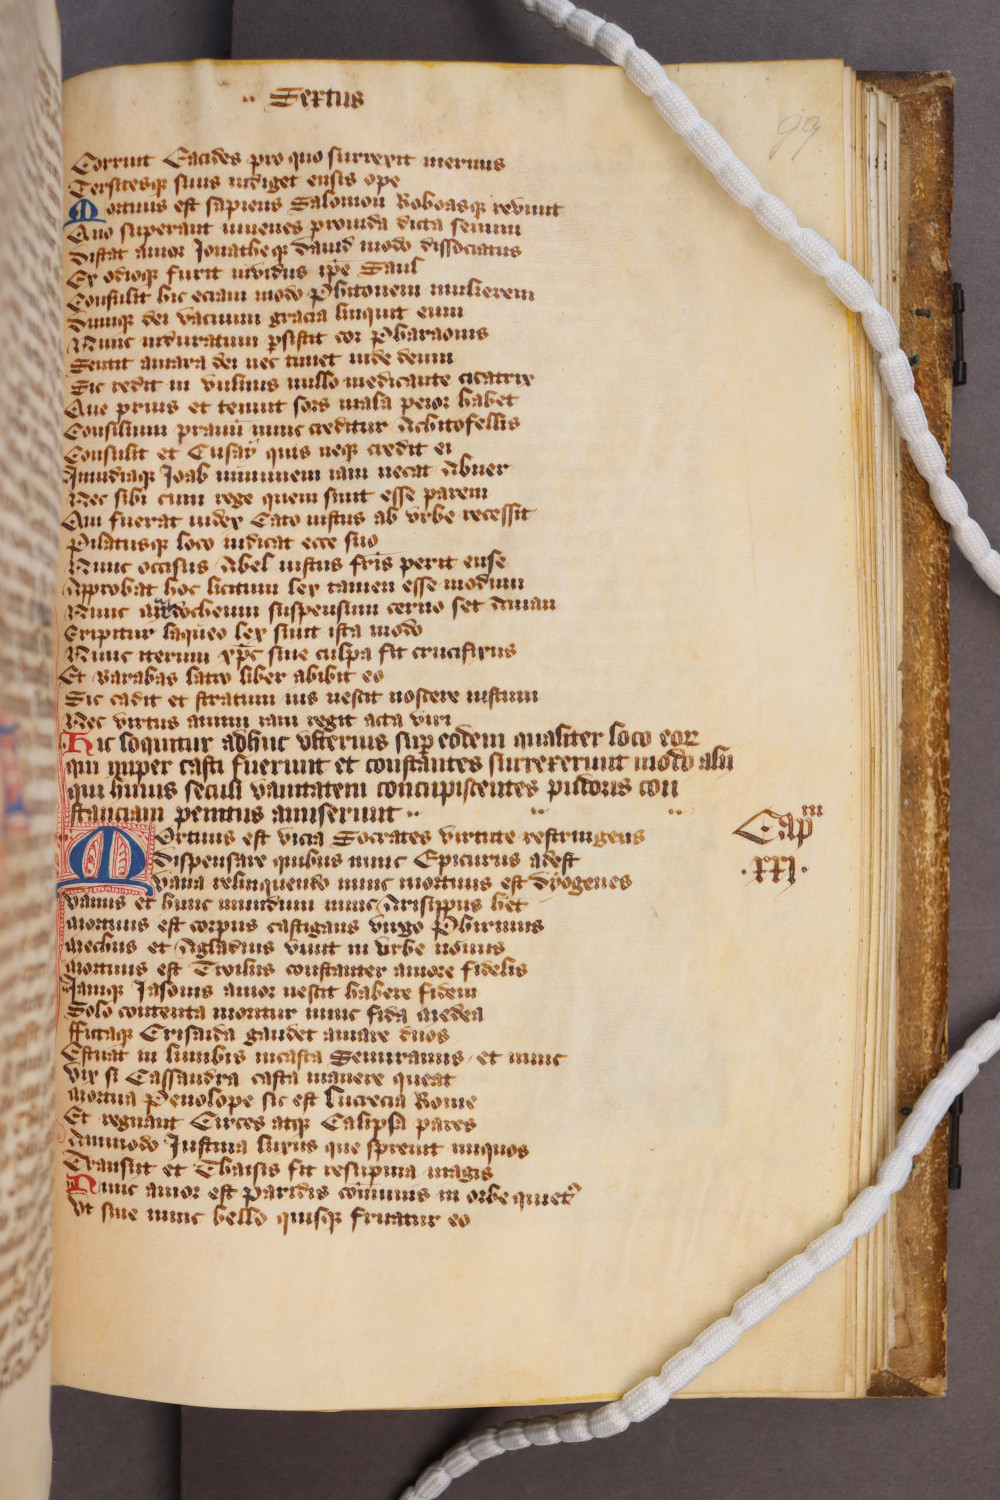 ·· Sextus
99
Corruit Eacides pro quo surrexit inermis
Tersitesque suus indiget ensis ope
Mortuus est sapiens Salomon Roboasque reviuit
Quo superant iuuenes prouida dicta senum
Distat amor Jonatheque dauid modo dissociatus
Ex odioque furit inuidus ipse Saul
Consulit hic eciam modo Phitonem mulierem
Dumque dei vacuum gracia linquit eum
Nunc induratum persistit cor Pharaonis
Sentit amara dei nec timet inde deum
Sic redit in vulnus nullo medicante cicatrix
Que prius et tenuit sors mala peior habet
Consilium prauum nunc creditur Achitofellis
Consulit et Cusay quis neque credit ei
Inuidiaque Joab inimicum iam necat Abner
Nec sibi cum rege quem sinit esse parem
Qui fuerat iudex Cato iustus ab vrbe recessit
Pilatusque loco iudicat ecce suo
Nunc occisus Abel iustus fratris perit ense
Approbat hoc licitum lex tamen esse modum
Nunc mardocheum suspensum cerno set Aman
Eripitur laqueo lex sinit ista modo
Nunc iterum xpc sine culpa fit crucifixus
Et Barabas latro liber abibit eo
Sic cadit et stratum ius nescit noscere iustum
Nec virtus animi iam regit acta viri
Hic loquitur adhuc vlterius super eodem qualiter loco eorum
qui nuper casti fuerunt et constantes surrexerunt modo alii
qui huius seculi vanitatem concupiscentes pudoris con
stanciam penitus amiserunt ·· ·· ··
Capm
·xxi·
Mortuus est vicia Socrates virtute restringens
Dispensare quibus nunc Epicurus adest
Vana relinquendo nunc mortuus est dyogenes
Vanus et hunc mundum nunc Arisippus het
Mortuus est corpus castigans virgo Phirinus
Mechus et Agladius viuit in vrbe nouus
Mortuus est Troilus constanter amore fidelis
Jamque Jasonis amor nescit habere fidem
Solo contenta moritur nunc fida medea
Fictaque Crisaida gaudet amare duos
Estuat in lumbis incasta Semiramis et nunc
Vix si Cassandra casta manere queat
Mortua Penolope sic est Lucrecia Rome
Et regnant Circes atque Calipsa pares
Ammodo Justinia luxus que spreuit iniquos
Transiit et Thaisis fit resupina magis
Nunc amor est paridis communis in orbe quiet'
Vt sine nunc bello quisque fruatur eo